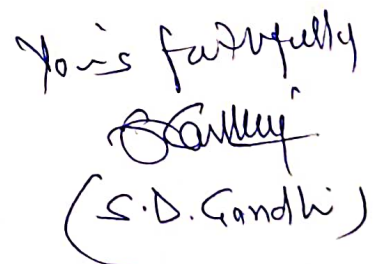 Yours faithfully
(S.D. Gandhi)